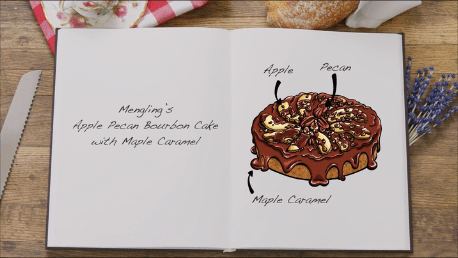 Mengling's
Apple Pecan Bourbon Cake
with Maple Caramel
Apple
Pecan
Maple Caramel